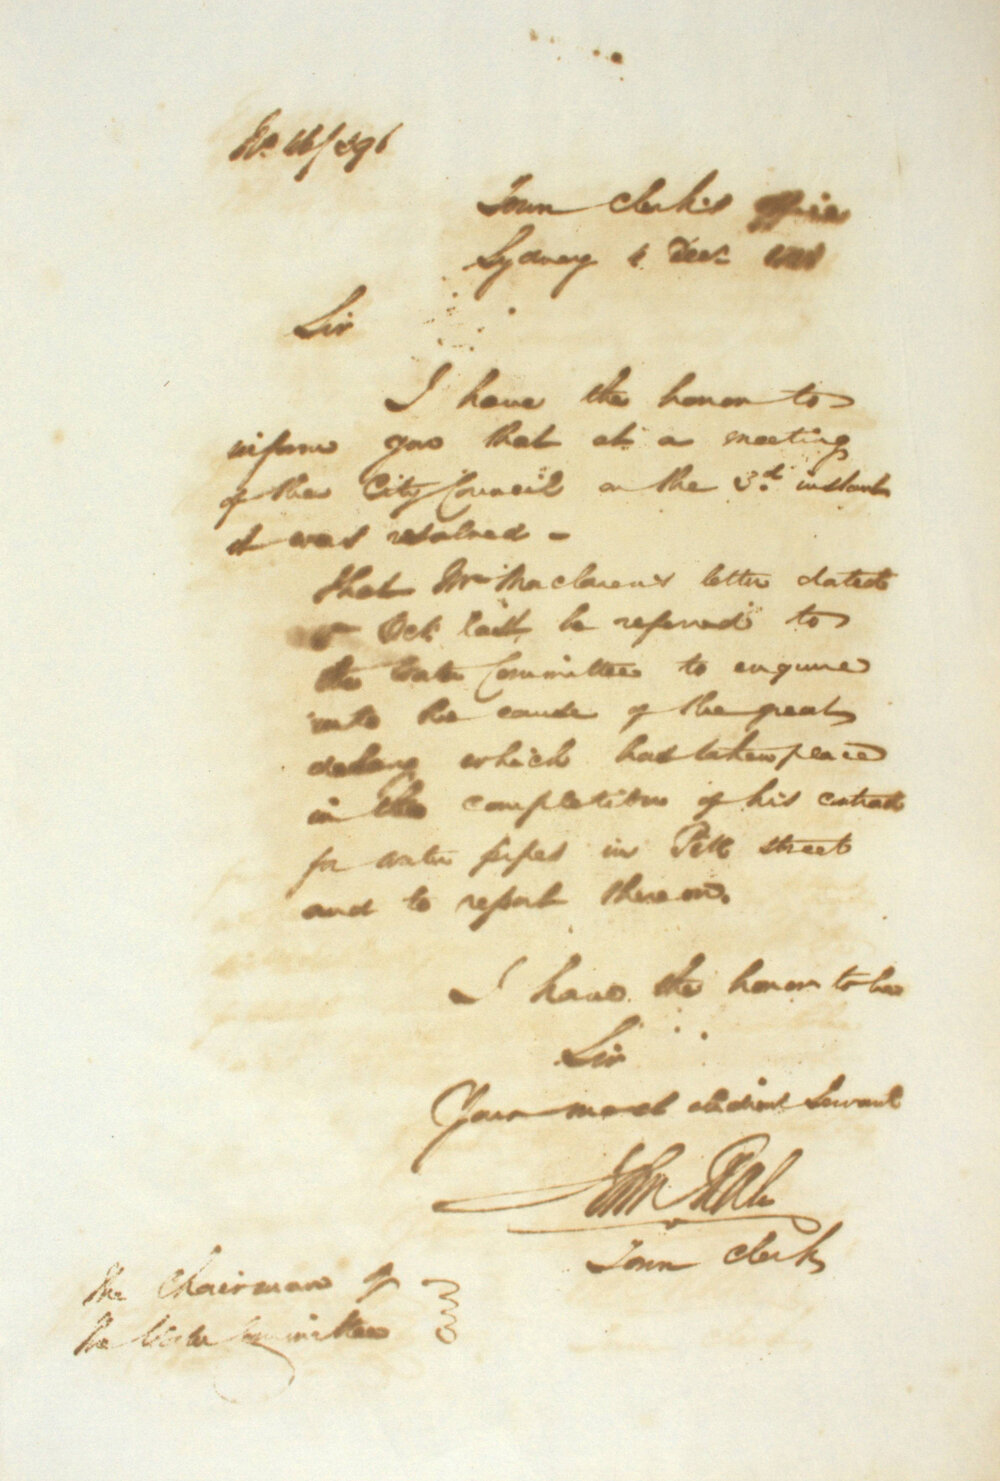 Town Clerk's Office
Sydney 4 Decr
Sir
I have the honor to
inform you that at a meeting
of the City Council on the 3rd instant
it was resolved –
that Mr Maclaren's letter dated
Oct last be referred to
the Water Committee to enquire
into the cause of the great
delay which has taken place
in the completion of his contract
for water pipes in Pitt street
and to report thereon.
I have the honor to be
Sir
Your most obedient Servant
John
Town Clerk
The Chairman of
the Water Committee